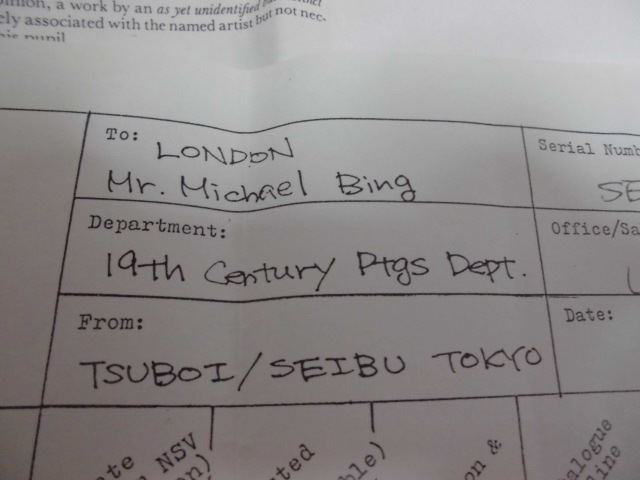 a work by an as yet unidentified
ely associated with the named artist but not nec-
his pupil
To:
LONDON
Mr. Michael Bing
Serial Numb
SE
Department:
19th Century Ptgs Dept.
Office/Sa
From:
TSUBOI/SEIBU TOKYO
Date:
NSV